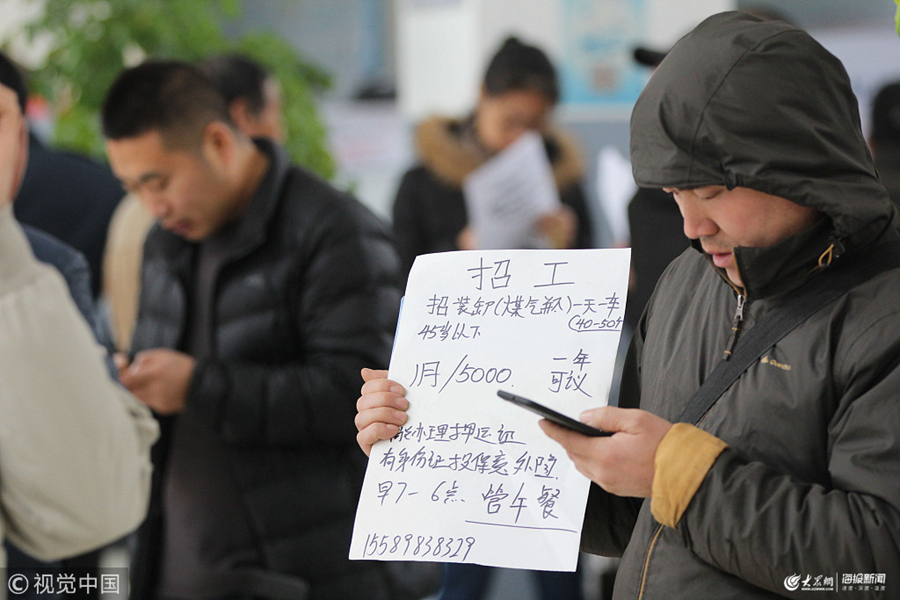 招工
招装卸(煤气瓶)一天一车
45岁以下 (40-50吨)
1月/5000. 一年
可议
能办理押运证
有身份证投保意外险.
早7-6点. 管午餐
15589838329
©视觉中国
大众网 海报新闻